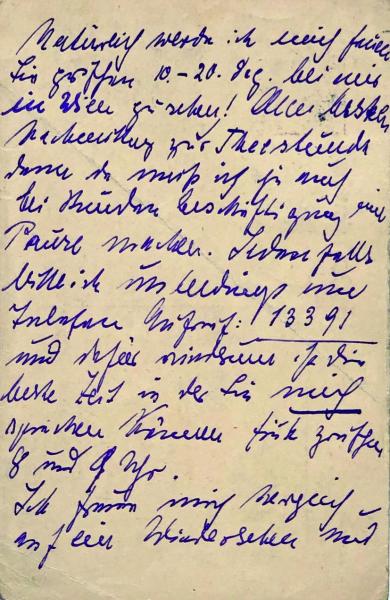 Natürlich werde ich mich freuen
Sie zwischen 10–20. Dez. bei mir
in Wien zu sehen! Am besten
Nachmittag zur Theestunde
denn da muß ich ja auch
bei Stunden Beschäftigung eine
Pause machen. Jedenfalls
bitte ich unbedingt um
Telefon Anruf: 13391
und dafür wiederum ist die
beste Zeit in der Sie mich
sprechen können früh zwischen
8 und 9 Uhr.
Ich freue mich herzlich
auf ein Wiedersehen und